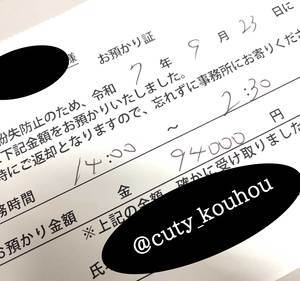 様 お預かり証
紛失防止のため、令和 7 年 9 月 23 日に
下記金額をお預かりいたしました。
時にご返却となりますので、忘れずに事務所にお寄りくださ
務時間 14:00 ～ 2:30
お預かり金額 金 94000 円
※上記の金額、確かに受け取りました
氏
@cuty_kouhou